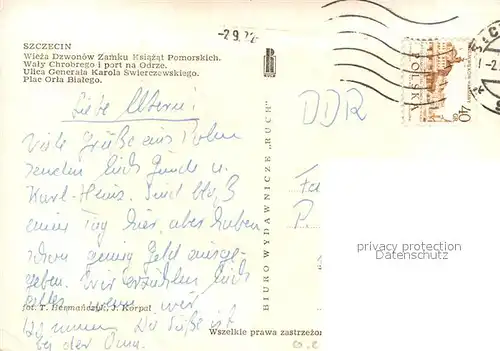 SZCZECIN
Wieża Dzwonów Zamku Książąt Pomorskich.
Wały Chrobrego i port na Odrze.
Ulica Generała Karola Świerczewskiego.
Plac Orła Białego.
-2.9.72
POLSKA
40
GR
Liebe Eltern!
DDR
Viele Grüße aus Polen
senden Euch Gunda u.
Karl-Heinz. Sind bloß
einen Tag hier, aber haben
schon genug Geld ausge-
geben. Wir erzählen Euch
alles, wenn wir
kommen. Die Süße ist
bei der Oma.
BIURO WYDAWNICZE „RUCH"
P.
privacy protection
watermark
fot. T. Hermańczyk, J. Korpal
Wszelkie prawa zastrzeżon